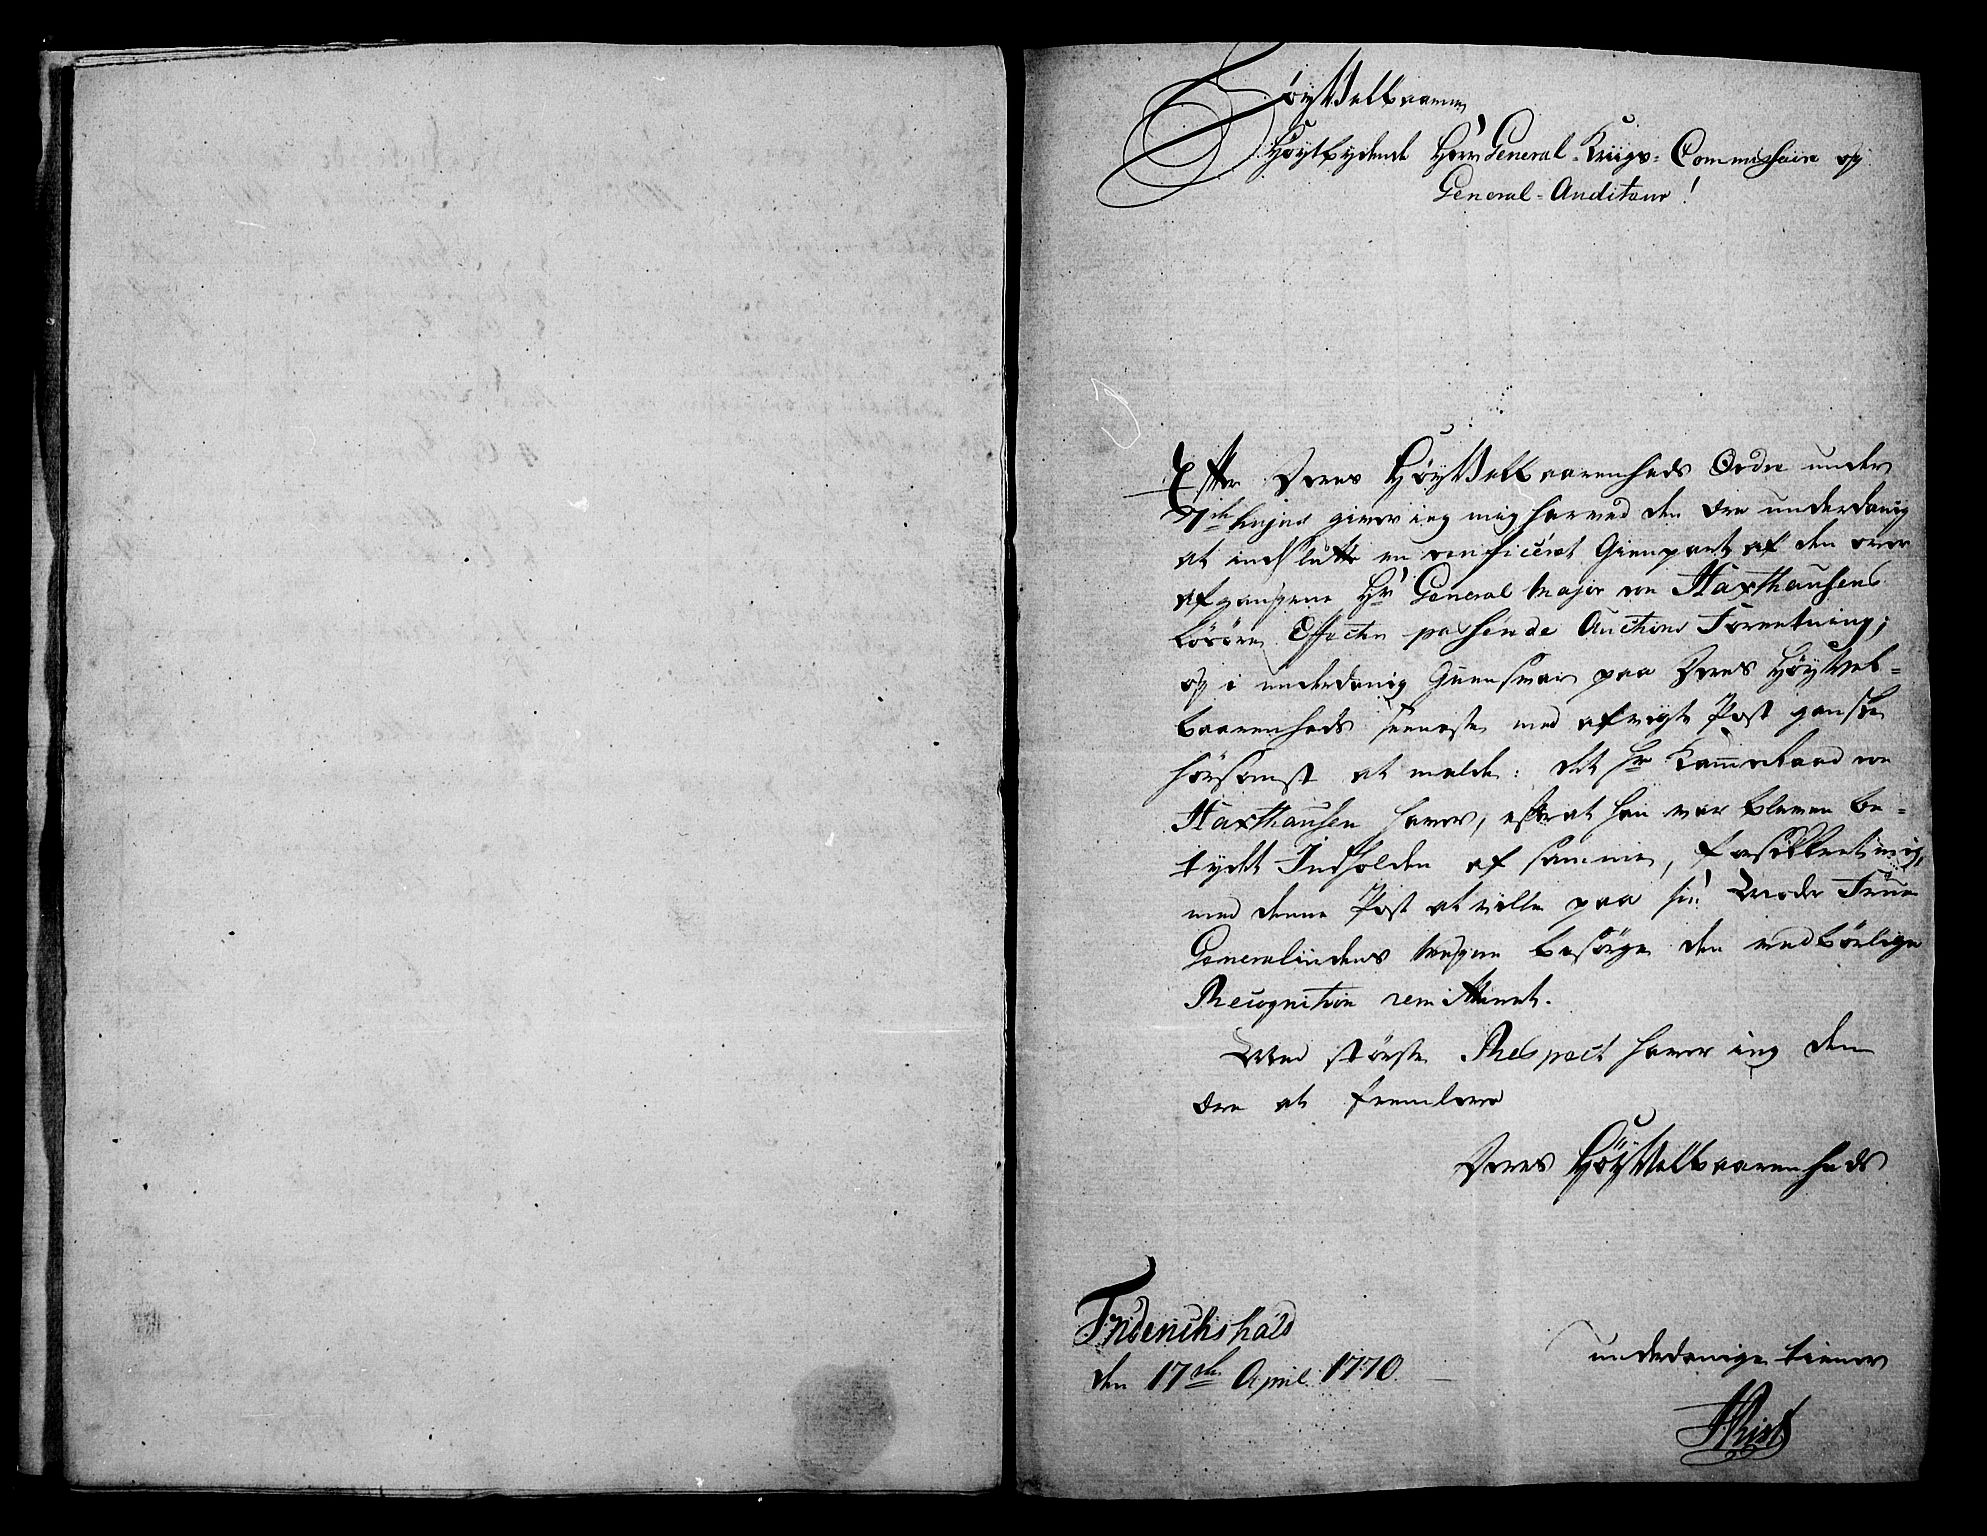 HøyVelbaarne
Høytbydende Herr General-Kriigs-Commissaire og
General-Auditeur!
Efter Deres HøyVelbaarenheds Ordre under
7de hujus giver ieg mig herved den ære underdanig
at indslutte en verificeret Gienpart af den over
afgangene Hr General Major von Haxthausens
Løsøre Effecter passerede Auctions Forretning;
og i underdanig Giensvar paa Deres HøyVel-
baarenheds seeneste med afvigte Post ganske
hørsomst at melde: det Hr Kammerraad von
Haxthausen haver, efter at han var bleven be-
tydet Indholden af samme, forsikkret mig,
med denne Post at ville paa sin Moder Frue
Generalindens Vegne besørge den vedbørlige
Recognition remitteret.
Med største Respect haver ieg den
ære at fremleve
Deres HøyVelbaarenheds
Friderichshald
den 17de April 1770.
underdanige tiener